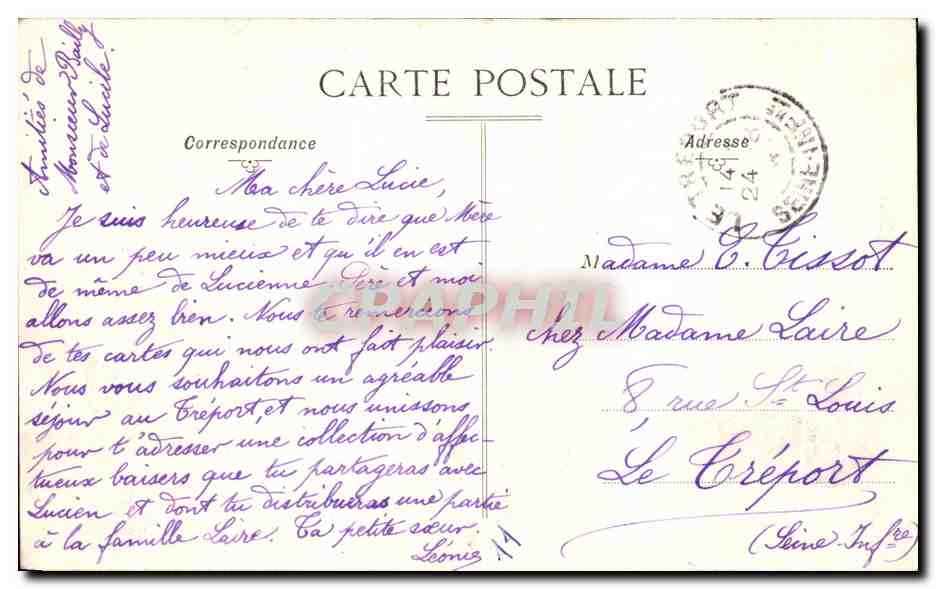 CARTE POSTALE
Correspondance
Adresse
Amitiés de
Monsieur Bailly
et de Lucile.
Ma chère Lucie,
Je suis heureuse de te dire que Mère
va un peu mieux et qu'il en est
de même de Lucienne. Père et moi
allons assez bien. Nous te remercions
de tes cartes qui nous ont fait plaisir.
Nous vous souhaitons un agréable
séjour au Tréport, et nous unissons
pour t'adresser une collection d'affec-
tueux baisers que tu partageras avec
Lucien et dont tu distribueras une partie
à la famille Laire. Ta petite sœur.
Léonie
LE TREPORT
SEINE-INFRE
14
24
Madame C. Tissot
chez Madame Laire
8, rue St. Louis
Le Tréport
(Seine-Infre)
CPAPHIL